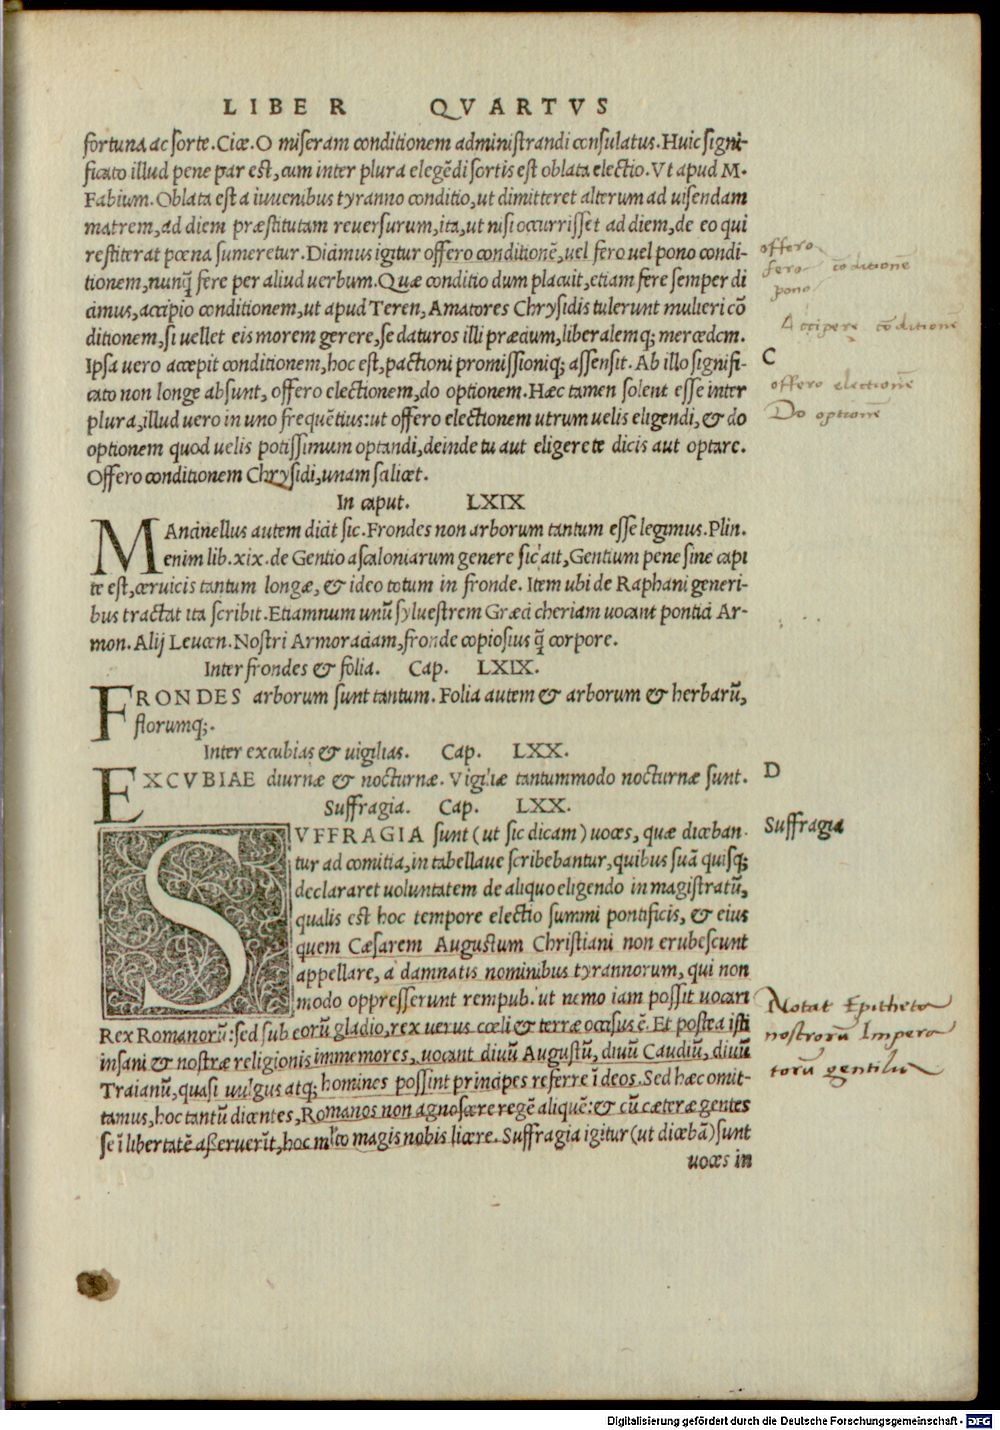 LIBER QVARTVS
fortuna ac sorte. Cic. O miseram conditionem administrandi consulatus. Huic signi-
ficato illud pene par est, cum inter plura elegẽdi sortis est oblata electio. Vt apud M.
Fabium. Oblata est a iuuenibus tyranno conditio, ut dimitteret alterum ad uisendam
matrem, ad diem præstitutam reuersurum, ita, ut nisi occurrisset ad diem, de eo qui
restiterat pœna sumeretur. Dicimus igitur offero conditionẽ, uel fero uel pono condi-
tionem, nunq̃ fere per aliud uerbum. Quæ conditio dum placuit, etiam fere semper di
cimus, accipio conditionem, ut apud Teren, Amatores Chrysidis tulerunt mulieri cõ
ditionem, si uellet eis morem gerere, se daturos illi præcium, liberalemq; mercedem.
Ipsa uero accepit conditionem, hoc est, pactioni promissioniq; assensit. Ab illo signifi-
cato non longe absunt, offero electionem, do optionem. Hæc tamen solent esse inter
plura, illud uero in uno frequẽtius: ut offero electionem utrum uelis eligendi, & do
optionem quod uelis potissimum optandi, deinde tu aut eligere te dicis aut optare.
Offero conditionem Chrysidi, unam scilicet.
In caput. LXIX
MAncinellus autem dicit sic. Frondes non arborum tantum esse legimus. Plin.
enim lib. xix. de Gentio ascaloniarum genere sic ait, Gentium pene sine capi
te est, ceruicis tantum longæ, & ideo totum in fronde. Item ubi de Raphani generi-
bus tractat ita scribit. Etiamnum unũ syluestrem Græci cheriam uocant pontici Ar-
mon. Alij Leucen. Nostri Armoraciam, fronde copiosius q̃ corpore.
Inter frondes & folia. Cap. LXIX.
FRONDES arborum sunt tantum. Folia autem & arborum & herbarũ,
florumq;.
Inter excubias & uigilias. Cap. LXX.
EXCVBIAE diurnæ & nocturnæ. Vigiliæ tantummodo nocturnæ sunt.
Suffragia. Cap. LXX.
SVFFRAGIA sunt (ut sic dicam) uoces, quæ diceban-
tur ad comitia, in tabellaue scribebantur, quibus suã quisq;
declararet uoluntatem de aliquo eligendo in magistratũ,
qualis est hoc tempore electio summi pontificis, & eius
quem Cæsarem Augustum Christiani non erubescunt
appellare, a damnatis nominibus tyrannorum, qui non
modo oppresserunt rempub. ut nemo iam possit uocari
Rex Romanorũ: sed sub eorũ gladio, rex uerus cœli & terræ occisus ẽ. Et postea isti
insani & nostræ religionis immemores, uocant diuũ Augustũ, diuũ Caudiũ, diuũ
Traianũ, quasi uulgus atq; homines possint principes referre ĩ deos. Sed hæc omit-
tamus, hoc tantũ dicentes, Romanos non agnoscere regẽ aliquẽ: & cũ cæteræ gentes
se ĩ libertatẽ asseruerĩt, hoc mĩto magis nobis licere. Suffragia igitur (ut dicebã) sunt
uoces in
offero
fero cõditionẽ
pono
Accipere cõditionẽ
C
offero electionẽ
Do optionẽ
D
Suffragia
Notat Epitheta
nostrorũ Impera
torũ gentiliũ
Digitalisierung gefördert durch die Deutsche Forschungsgemeinschaft - DFG